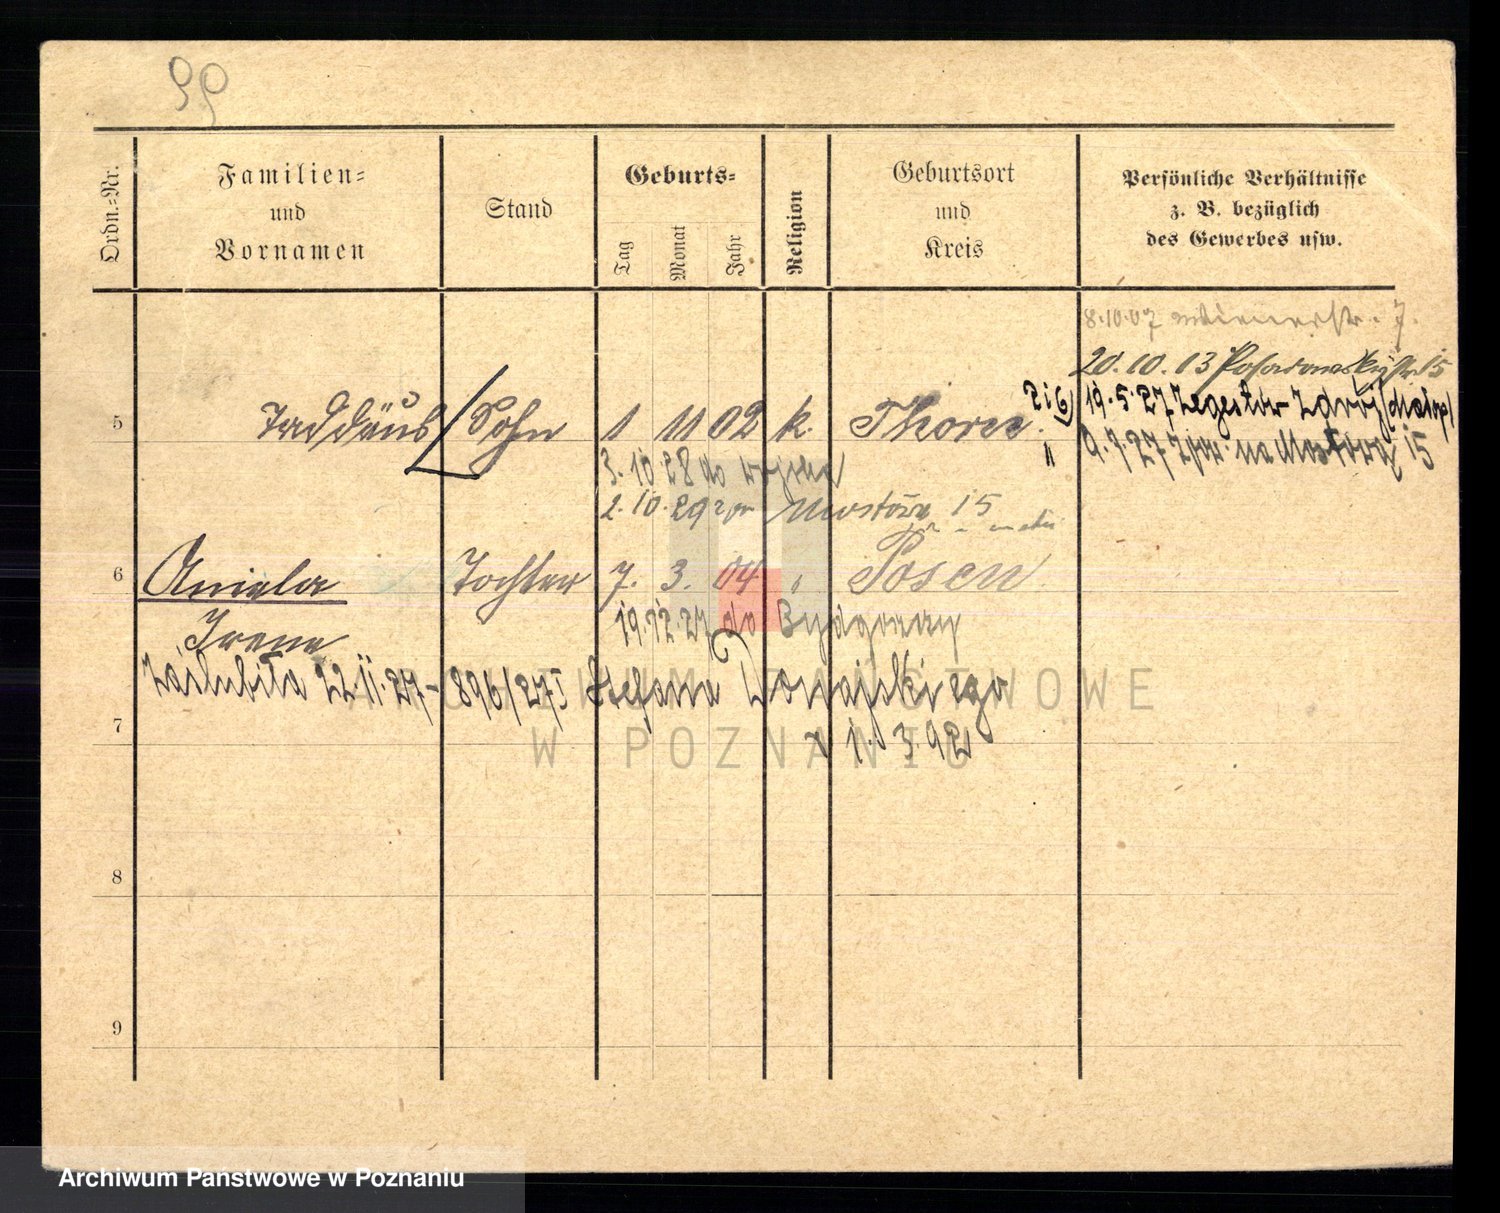 99
Ordn.-Nr.
Familien-
und
Vornamen
Stand
Geburts-
Tag
Monat
Jahr
Religion
Geburtsort
und
Kreis
Persönliche Verhältnisse
z. B. bezüglich
des Gewerbes usw.
8.10.07 7.
20.10.13 Posadowskystr 15
19.5.27 Zegestów Zdrój
5 Taddäus Sohn 1 11 02 k. Thorn
" 9.7.27 na Mostową 15
3.10.28 do wojska
2.10.29 Mostowa 15
6 Aniela Tochter 7. 3. 04 " Posen
Irene
19.12.27 do Bydgoszczy
Zaślubiła 22.11.27 - 896/27 I Stefana
7
* 1. 3. 92
8
9
ARCHIWUM PAŃSTWOWE
W POZNANIU
Archiwum Państwowe w Poznaniu